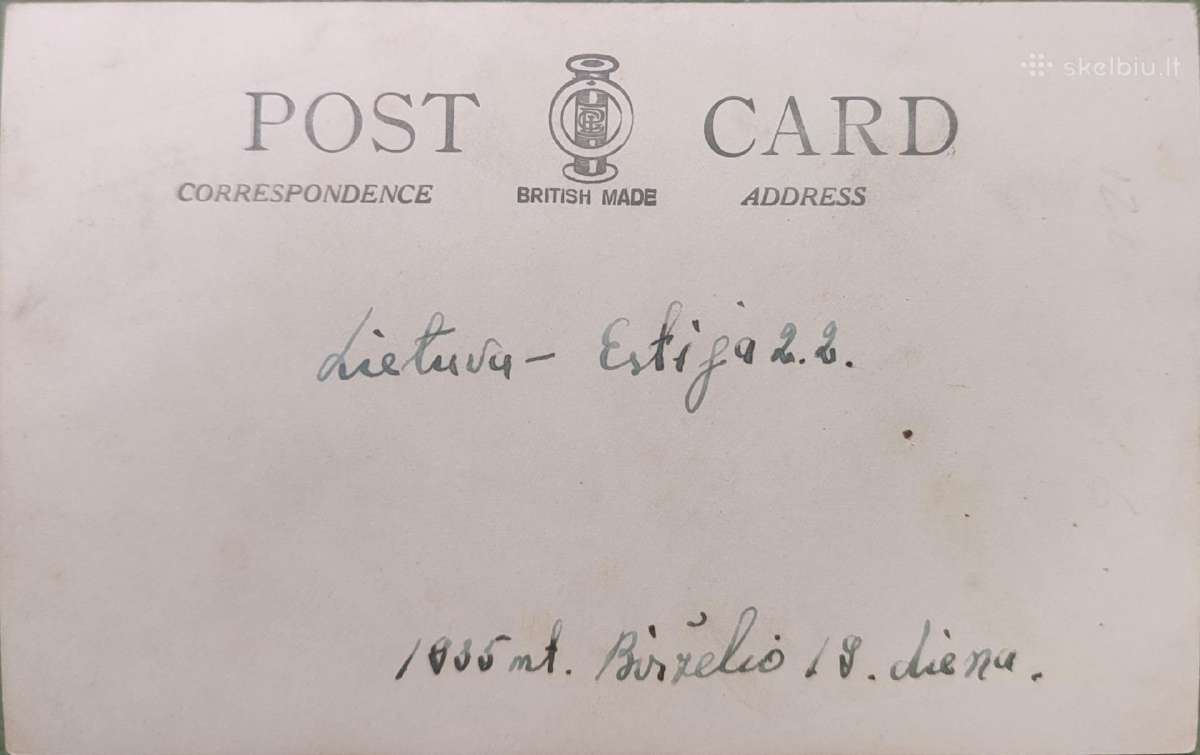 skelbiu.lt
POST CARD
CORRESPONDENCE BRITISH MADE ADDRESS
Lietuva – Estija 2.2.
1935 mt. Birželio 19. diena.